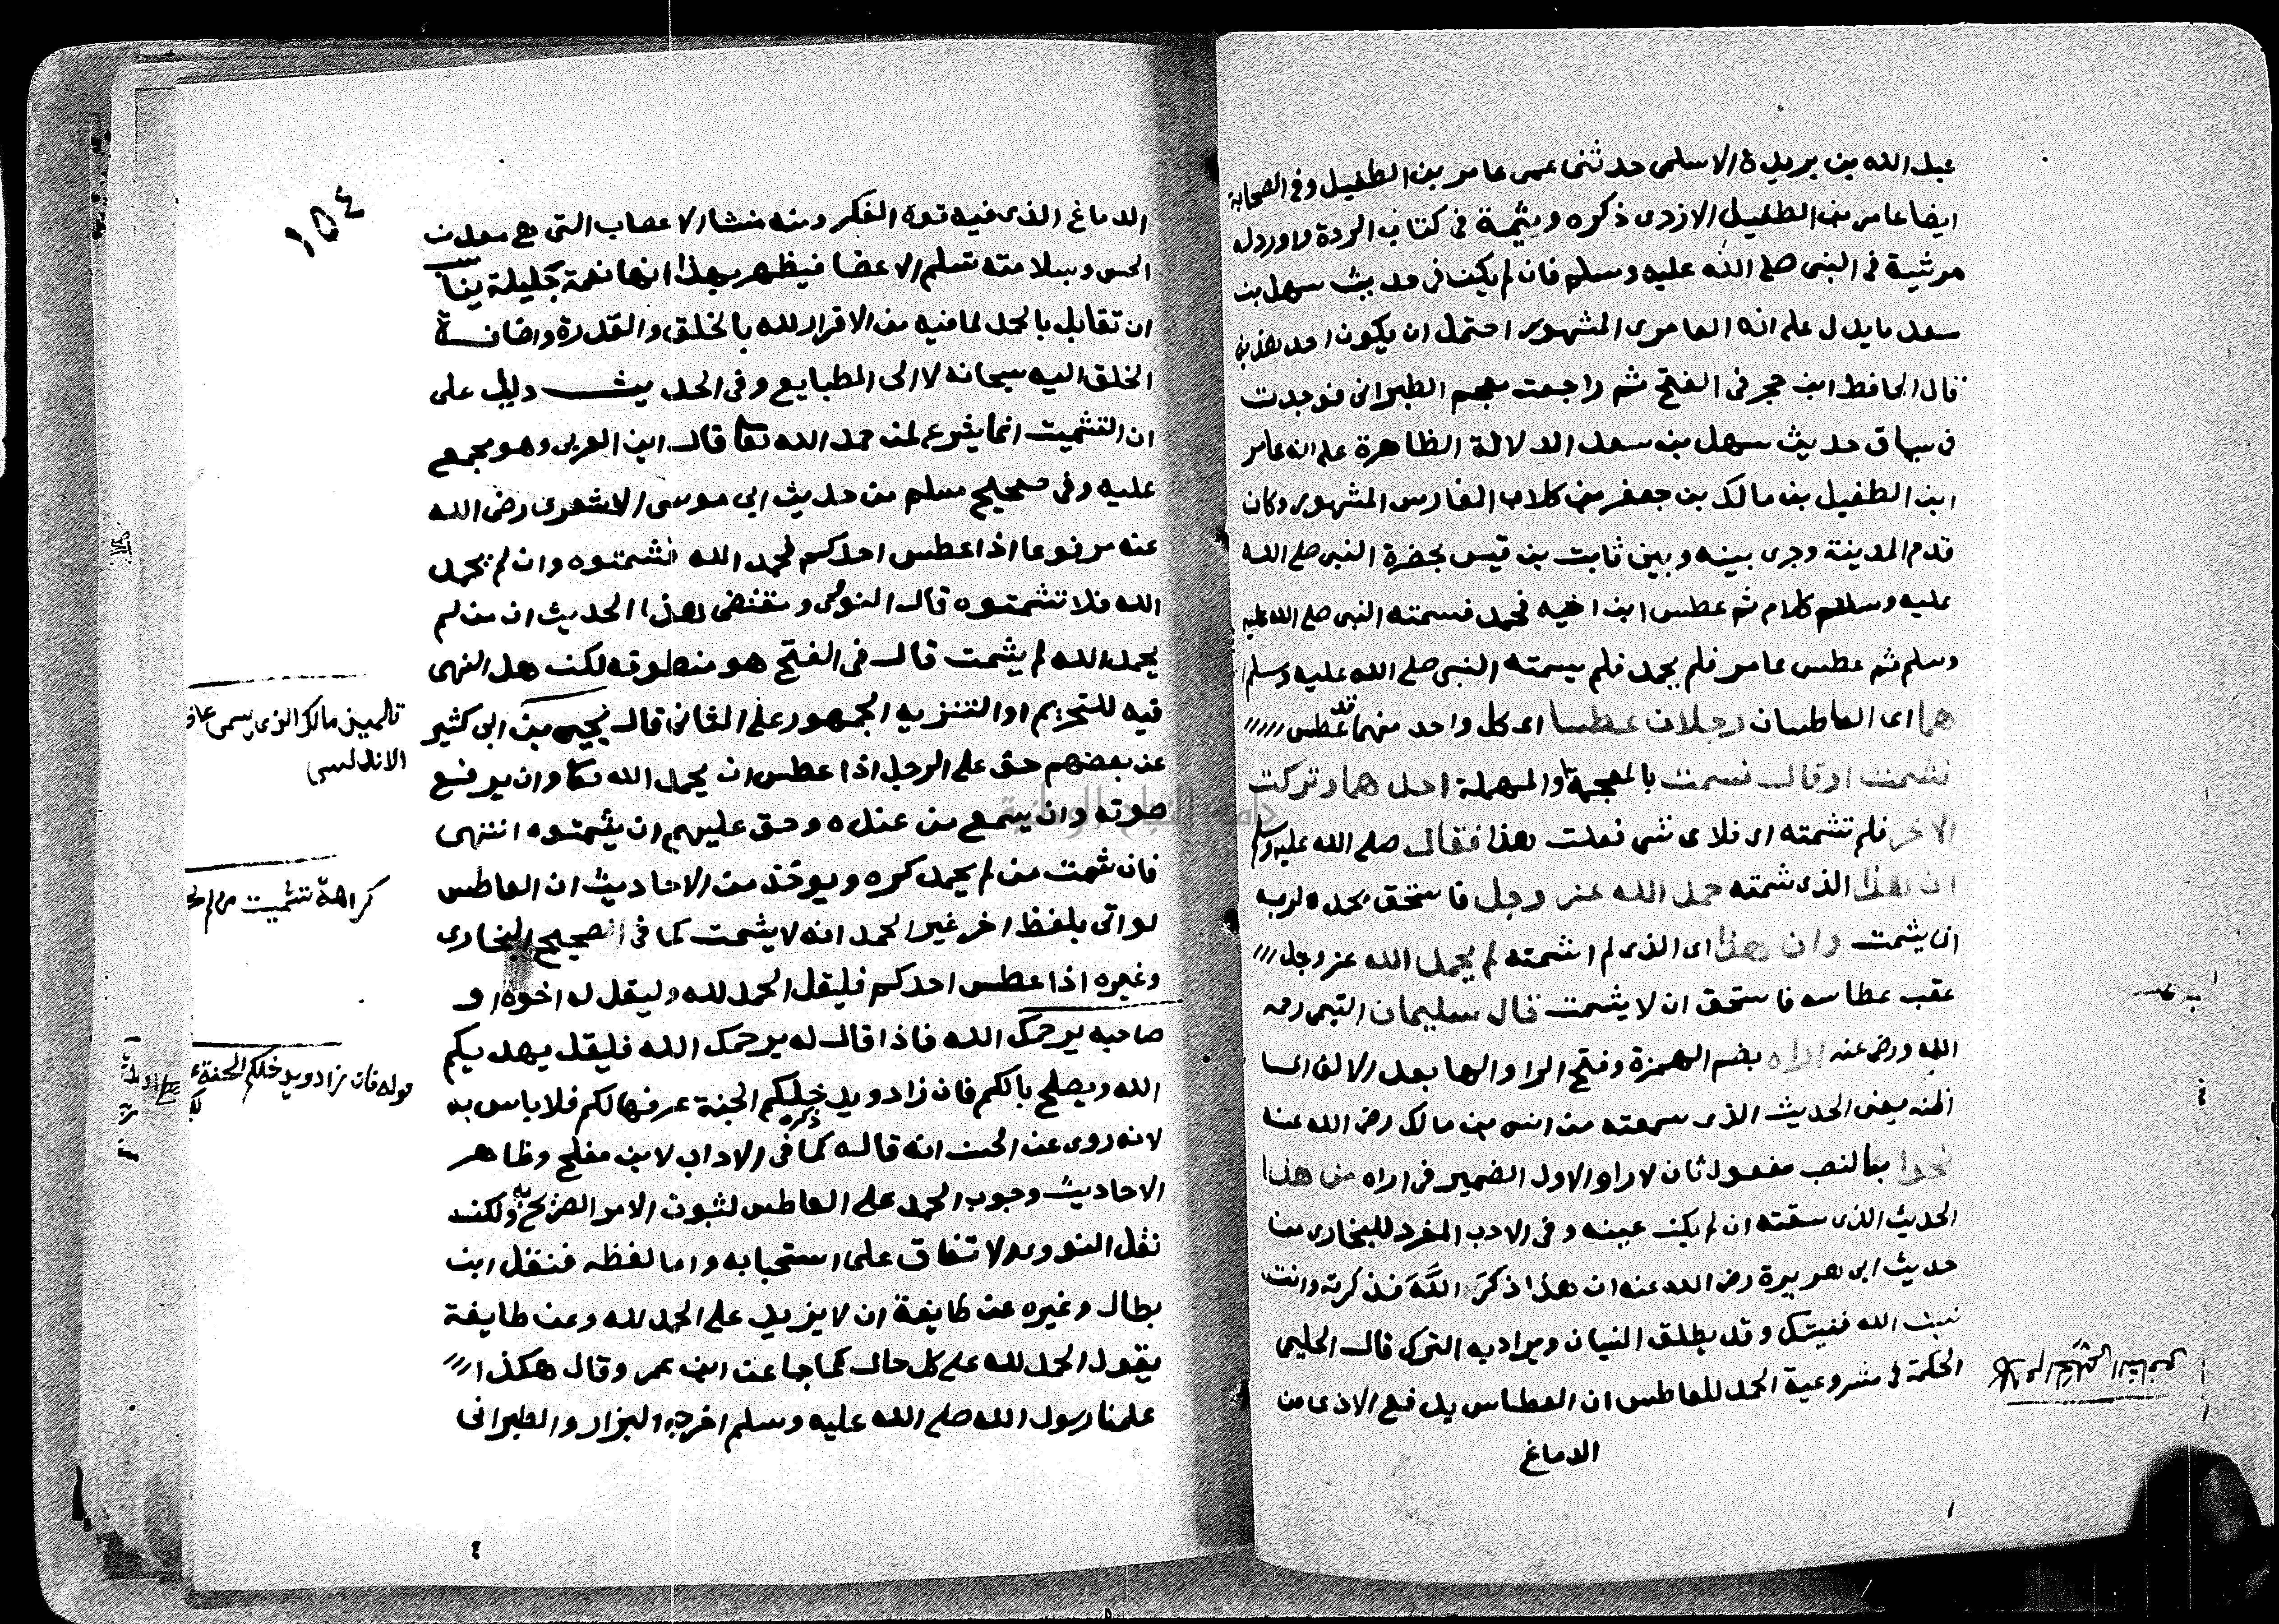 عبد الله بن بريدة الاسلمى حدثنى عمى عامر بن الطفيل وفى الصحابة
ايضا عامر بن الطفيل الازدى ذكره وثيمة فى كتاب الردة واورد له
مرثية فى النبى صلى الله عليه وسلم فان لم يكن فى حديث سهل بن
سعد ما يدل على انه العامرى المشهور احتمل ان يكون احد هذين
قال الحافظ ابن حجر فى الفتح ثم راجعت معجم الطبرانى فوجدت
فى سياق حديث سهل بن سعد الدلالة الظاهرة على انه عامر
ابن الطفيل بن مالك بن جعفر بن كلاب الفارس المشهور وكان
قدم المدينة وجرى بينه وبين ثابت بن قيس بحضرة النبى صلى الله
عليه وسلم كلام ثم عطس ابن اخيه فحمد فسمته النبى صلى الله عليه
وسلم ثم عطس عامر فلم يحمد فلم يسمته النبى صلى الله عليه وسلم
هما اى العاطسان رجلان عطسا اى كل واحد منهما قد عطس
فشمت او قال فسمت بالمعجمة والمهملة احدهما وتركت
الاخر فلم تشمته اى فلاى شى فعلت هذا فقال صلى الله عليه وسلم
ان هذا الذى شمته حمد الله عز وجل فاستحق بحمده لربه
ان يشمت وان هذا اى الذى لم اشمته لم يحمد الله عز وجل
عقب عطاسه فاستحق ان لا يشمت قال سليمان التيمى رحمه
الله ورضى عنه اراه بضم الهمزة وفتح الرا والها بعد الالف اى
اظنه يعنى الحديث الذى سمعته من انس بن مالك رضى الله عنه
نحوا بالنصب مفعول ثان لارا والاول الضمير فى اراه من هذا
الحديث الذى سقته ان لم يكن عينه وفى الادب المفرد للبخارى من
حديث ابى هريرة رضى الله عنه ان هذا ذكر الله فذكرته وانت
نسيت الله فنسيتك وقد يطلق النسيان ويراد به الترك قال الحليمى
الحكمة فى مشروعية الحمد للعاطس ان العطاس يدفع الاذى من
الدماغ
١٥٤
الدماغ الذى فيه قوة الفكر ومنه منشا الاعصاب التى هى معدن
الحس وبسلامته تسلم الاعضا فيظهر بهذا انها نعمة جليلة
ان تقابل بالحمد لما فيه من الاقرار لله بالخلق والقدرة واضافة
الخلق اليه سبحانه لا الى الطبايع وفى الحديث دليل على
ان التشميت انما يشرع لمن حمد الله تعا قال ابن العربى وهو مجمع
عليه وفى صحيح مسلم من حديث ابى موسى الاشعرى رضى الله
عنه مرفوعا اذا عطس احدكم فحمد الله فشمتوه وان لم يحمد
الله فلا تشمتوه قال النووى ومقتضى هذا الحديث ان من لم
يحمد الله لم يشمت قال فى الفتح هو منطوقه لكن هل النهى
فيه للتحريم او التنزيه الجمهور على الثانى قال يحيى بن ابى كثير
عن بعضهم حق على الرجل اذا عطس ان يحمد الله تعا وان يرفع
صوته وان يسمع من عنده وحق عليهم ان يشمتوه انتهى
فان شمت من لم يحمد كره ويوخذ من الاحاديث ان العاطس
لو اتى بلفظ اخر غير الحمد انه لا يشمت كما فى الصحيح البخارى
وغيره اذا عطس احدكم فليقل الحمد لله وليقل له اخوه او
صاحبه يرحمك الله فاذا قال له يرحمك الله فليقل يهديكم
الله ويصلح بالكم فان زاد ويدخلكم الجنة عرفها لكم فلا باس به
لانه روى عن الحسن انه قاله كما ذكره فى الاداب لابن مفلح وظاهر
الاحاديث وجوب الحمد على العاطس لثبوت الامر الصريح به ولكن
نقل النووى الاتفاق على استحبابه واما لفظه فنقل ابن
بطال وغيره عن طايفة ان لا يزيد على الحمد لله وعن طايفة
يقول الحمد لله على كل حال كما جا عن ابن عمر وقال هكذا
علمنا رسول الله صلى الله عليه وسلم اخرجه البزار والطبرانى
مالك الذى يسمى
الاندلسى
كراهة تشميت من لم
قوله فان زاد ويدخلكم الجنة
جامعة النجاح الوطنية